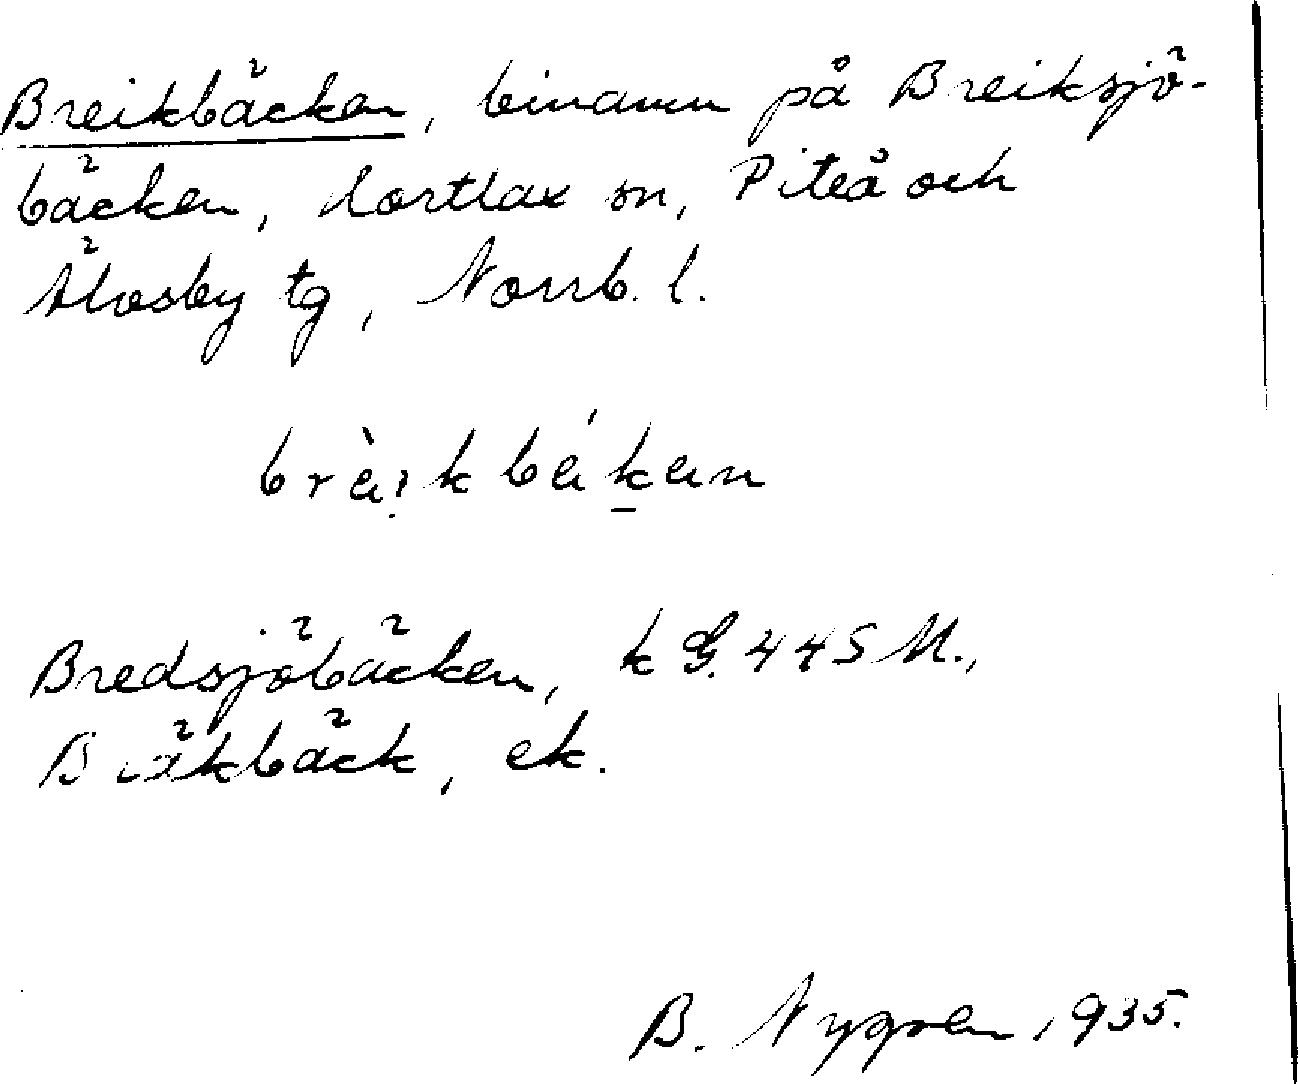 Breikbäcken, binamn på Breiksjö-
bäcken, Hortlax sn, Piteå och
Älvsby tg, Norrb. l.
Bredsjöbäcken, k G. 44 S M.,
Bräkbäck, ek.
B. Nygren 1935.